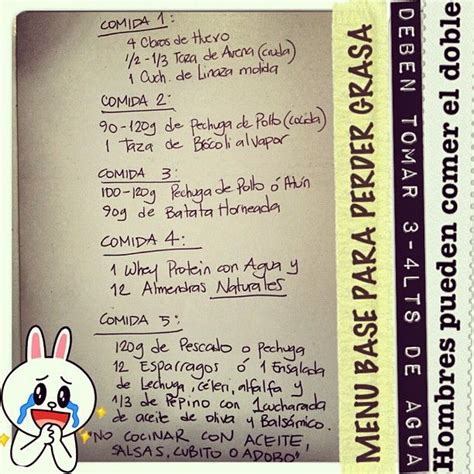 COMIDA 1:
4 Claras de Huevo
1/2 - 1/3 Taza de Avena (cruda)
1 Cuch. de Linaza molida
COMIDA 2:
90-120g de Pechuga de Pollo (cocida)
1 Taza de Brócoli al vapor
COMIDA 3:
100-120g Pechuga de Pollo ó Atún
90g de Batata Horneada
COMIDA 4:
1 Whey Protein con Agua y
12 Almendras Naturales
COMIDA 5:
120g de Pescado o Pechuga
12 Esparragos ó 1 Ensalada
de Lechuga, céleri, alfalfa y
1/3 de Pepino con 1 cucharada
de aceite de oliva y Balsámico.
"NO COCINAR CON ACEITE,
SALSAS, CUBITO O ADOBO"
MENU BASE PARA PERDER GRASA
DEBEN TOMAR 3-4LTS DE AGUA
Hombres pueden comer el doble